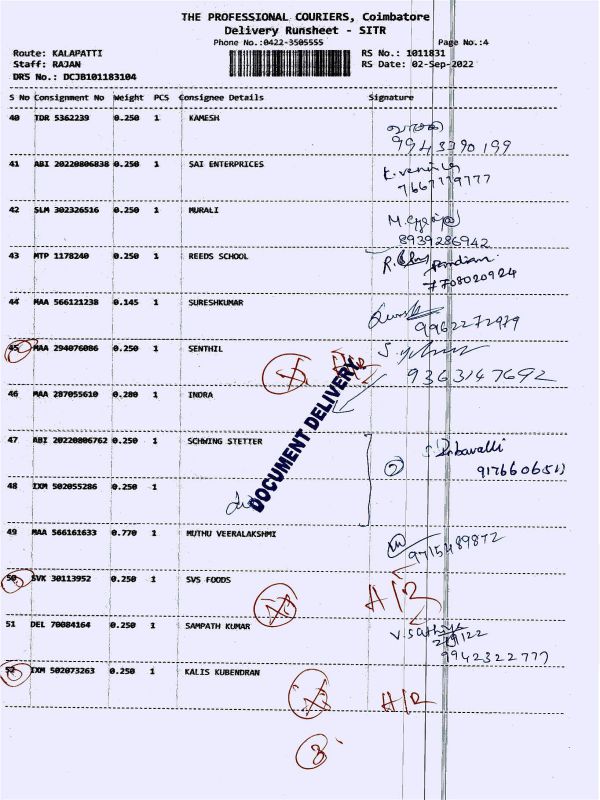 THE PROFESSIONAL COURIERS, Coimbatore
Delivery Runsheet - SITR
Phone No.:0422-3505555 Page No.:4
Route: KALAPATTI RS No.: 1011831
Staff: RAJAN RS Date: 02-Sep-2022
DRS No.: DCJB101183104
S No Consignment No Weight PCS Consignee Details Signature
40 TDR 5362239 0.250 1 KAMESH
9943390199
41 ABI 20220806838 0.250 1 SAI ENTERPRICES
7667779777
42 SLM 302326516 0.250 1 MURALI
8939286942
43 MTP 1178240 0.250 1 REEDS SCHOOL
7708020924
44 MAA 566121238 0.145 1 SURESHKUMAR
9962272979
45 MAA 294076086 0.250 1 SENTHIL
9363147692
46 MAA 287055610 0.280 1 INDRA
DOCUMENT DELIVERY
47 ABI 20220806762 0.250 1 SCHWING STETTER
2
48 IXM 502055286 0.250 1
49 MAA 566161633 0.770 1 MUTHU VEERALAKSHMI
9715489872
50 SVK 30113952 0.250 1 SVS FOODS
A/R
51 DEL 70084164 0.250 1 SAMPATH KUMAR
V. Sathiya
2/9/122
9942322777
52 IXM 502073263 0.250 1 KALIS KUBENDRAN
A/R
3